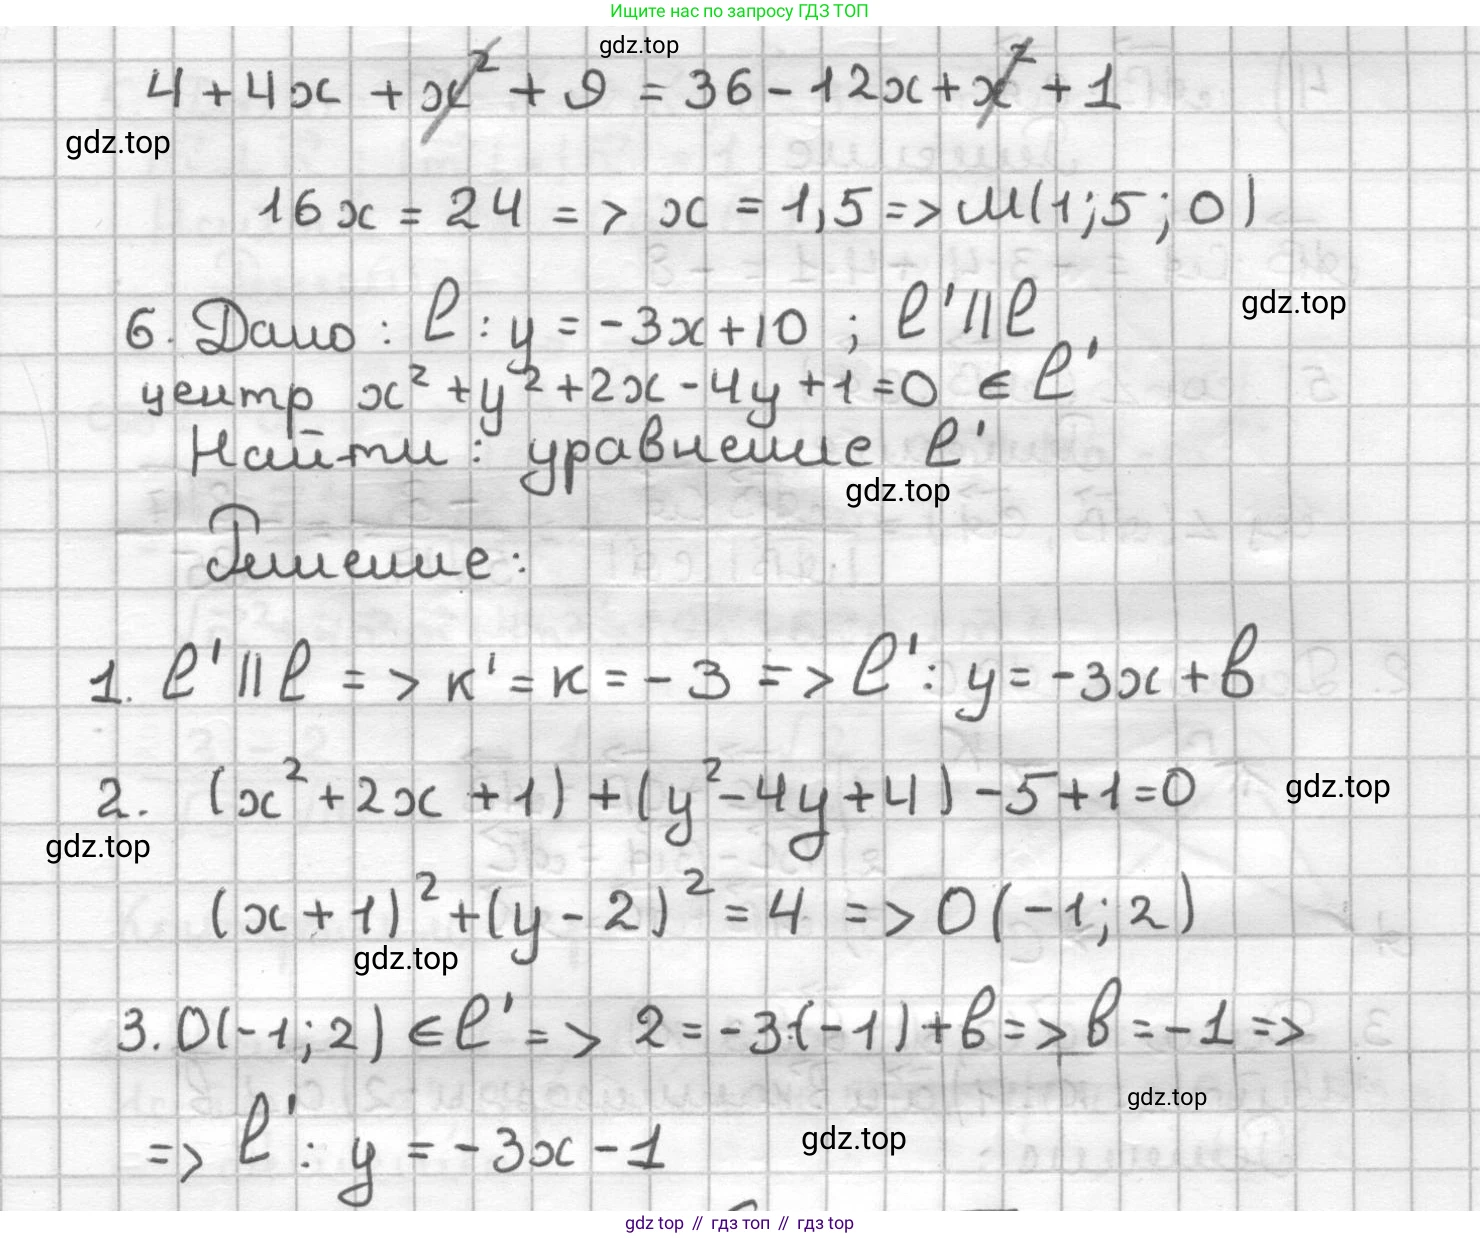 Ищите нас по запросу ГДЗ ТОП
gdz.top
4 + 4x + x² + 9 = 36 - 12x + x² + 1
gdz.top
16x = 24 => x = 1,5 => M(1;5;0)
gdz.top
6. Дано: l: y = -3x+10 ; l' || l
центр x² + y² + 2x - 4y + 1 = 0 ∈ l'
Найти: уравнение l'
gdz.top
Решение:
1. l' || l => к' = к = -3 => l': y = -3x + в
2. (x² + 2x + 1) + (y² - 4y + 4) - 5 + 1 = 0
gdz.top
gdz.top
(x + 1)² + (y - 2)² = 4 => O(-1; 2)
gdz.top
3. O(-1; 2) ∈ l' => 2 = -3·(-1) + в => в = -1 =>
gdz.top
=> l': y = -3x - 1
gdz.top
gdz top // гдз топ // гдз top